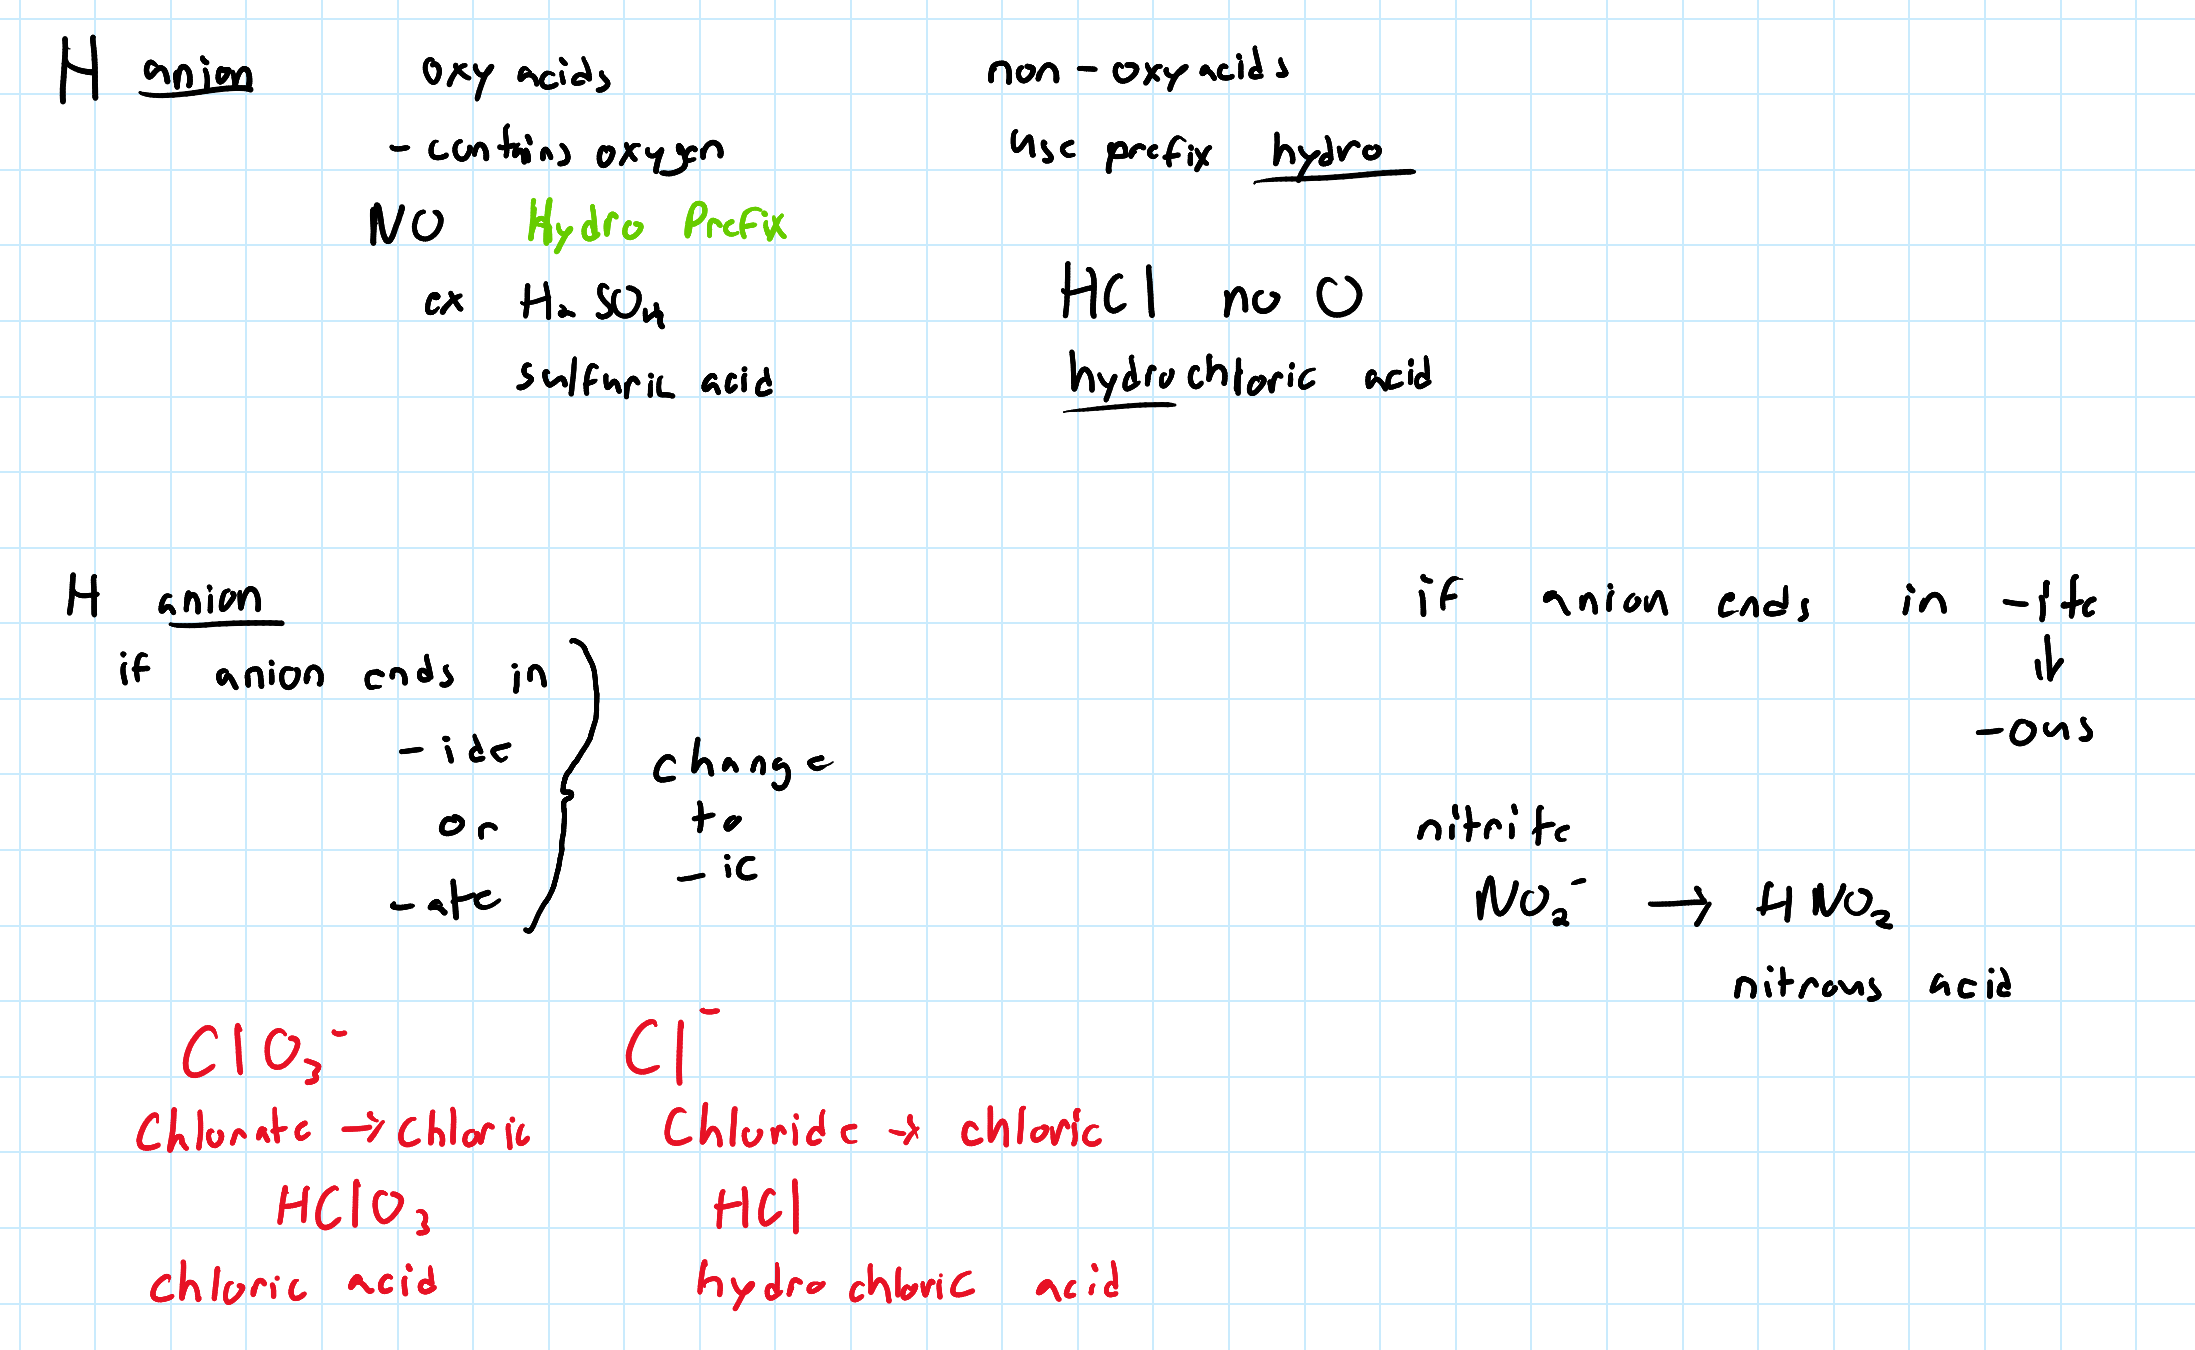 H anion
oxy acids
- contains oxygen
NO Hydro Prefix
ex H₂SO₄
sulfuric acid
non-oxyacids
use prefix hydro
HCl no O
hydrochloric acid
H anion
if anion ends in
-ide
or
-ate
change
to
-ic
ClO₃⁻
Chlorate → chloric
HClO₃
chloric acid
Cl⁻
Chloride → chloric
HCl
hydrochloric acid
if anion ends in -ite
↓
-ous
nitrite
NO₂⁻ → HNO₂
nitrous acid